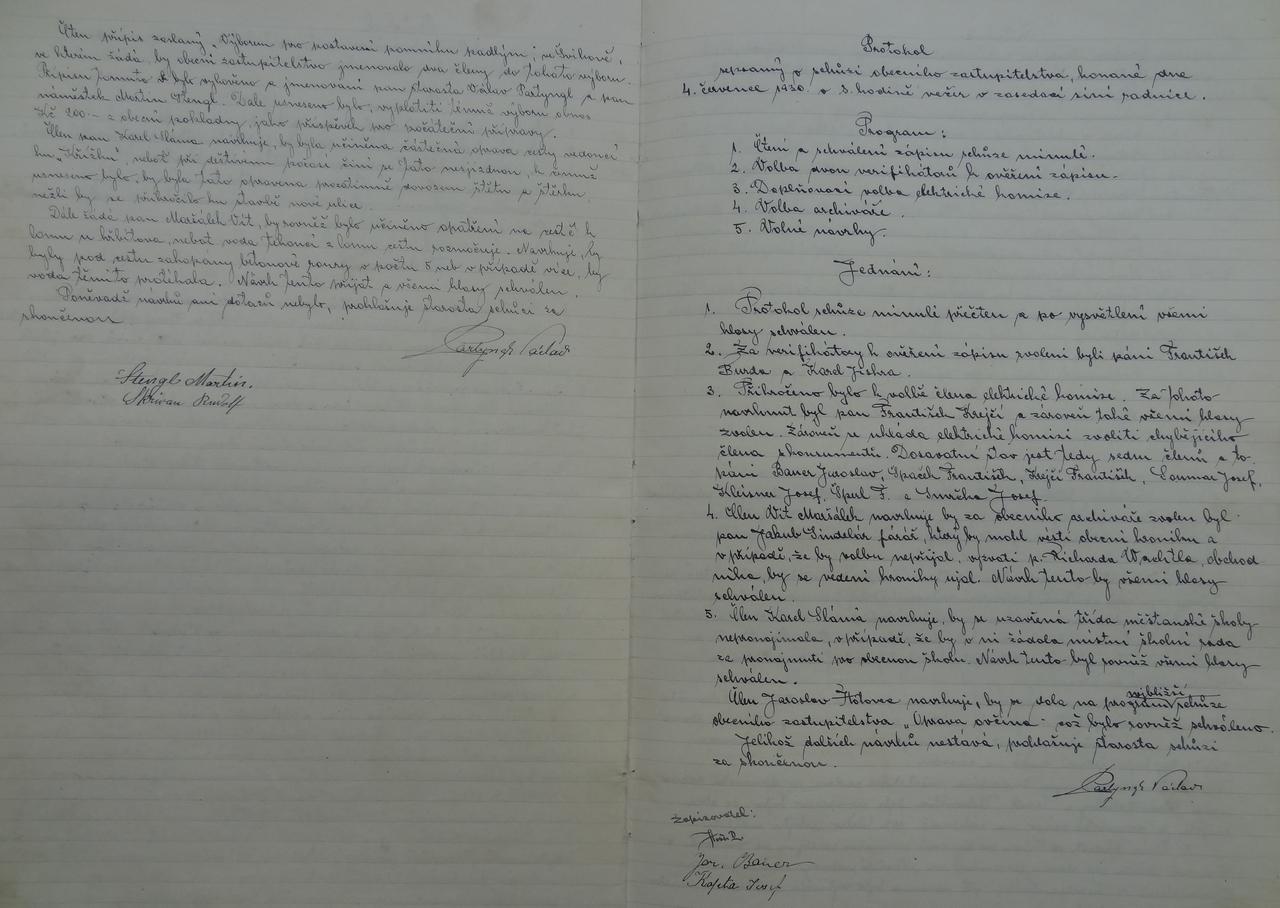 Čten přípis zaslaný „Výborem pro postavení pomníku padlým", ve Zvíkově,
ve kterém žádá, by obecní zastupitelstvo jmenovalo dva členy do tohoto výboru.
Přípisu tomuto bylo vyhověno a jmenováni pan starosta Václav Partyngl a pan
náměstek Martin Stengl. Dále usneseno bylo, vyplatiti témuž výboru obnos
Kč 200·- z obecní pokladny, jako příspěvek pro počáteční přípravy.
Člen pan Karel Sláma navrhuje, by byla učiněna částečná oprava cesty vedoucí
ku „Křížku", neboť při deštivém počasí činí se tato nesjízdnou, k čemuž
usneseno bylo, by byla tato opravena prozatímně dovozem štětu a štěrku,
nežli by se přikročilo ku stavbě nové ulice.
Dále žádá pan Maršálek Vít, by rovněž bylo učiněno opatření na cestě k
lomu u hřbitova, neboť voda tekoucí z lomu cestu rozmočuje. Navrhuje, by
byly pod cestu zakopány betonové roury v počtu 5 neb v případě více, by
voda těmito protékala. Návrh tento přijat a všemi hlasy schválen.
Poněvadž návrhů ani dotazů nebylo, prohlašuje starosta schůzi za
skončenou.
Partyngl Václav
Stengl Martin.
Skřivan Rudolf
Protokol
sepsaný o schůzi obecního zastupitelstva, konané dne
4. července 1930. o 8. hodině večer v zasedací síni radnice.
Program:
1. Čtení a schválení zápisu schůze minulé.
2. Volba dvou verifikátorů k ověření zápisu.
3. Doplňovací volba elektrické komise.
4. Volba archiváře.
5. Volné návrhy.
Jednání:
1. Protokol schůze minulé přečten a po vysvětlení všemi
hlasy schválen.
2. Za verifikátory k ověření zápisu zvoleni byli páni František
Burda a Karel Jiskra.
3. Přikročeno bylo k volbě člena elektrické komise. Za tohoto
navrhnut byl pan František Krejčí a zároveň také všemi hlasy
zvolen. Zároveň se ukládá elektrické komisi zvoliti chybějícího
člena z konsumentů. Dosavatní stav jest tedy sedm členů a to
páni Bauer Jaroslav, Spaček František, Krejčí František, Josef,
Kleisner Josef, Šperl F. a Smrčka Josef.
4. Člen Vít Maršálek navrhuje by za obecního archiváře zvolen byl
pan Jakub Šindelář farář, který by mohl vésti obecní kroniku a
v případě, že by volbu nepřijal, vyzvati p. Richarda Wachtla, obchod
níka, by se vedení kroniky ujal. Návrh tento by všemi hlasy
schválen.
5. Člen Karel Sláma navrhuje, by se uzavřená třída měšťanské školy
nepronajímala, v případě, že by o ni žádala místní školní rada
za pronajmutí pro obecnou školu. Návrh tento byl rovněž všemi hlasy
schválen.
Člen Jaroslav navrhuje, by se dala na program nejbližší schůze
obecního zastupitelstva „Oprava ovčína" což bylo rovněž schváleno.
Jelikož dalších návrhů nestává, prohlašuje starosta schůzi
za skončenou.
Partyngl Václav
Zapisovatel:
Jar. Bauer
Kafeta Josef